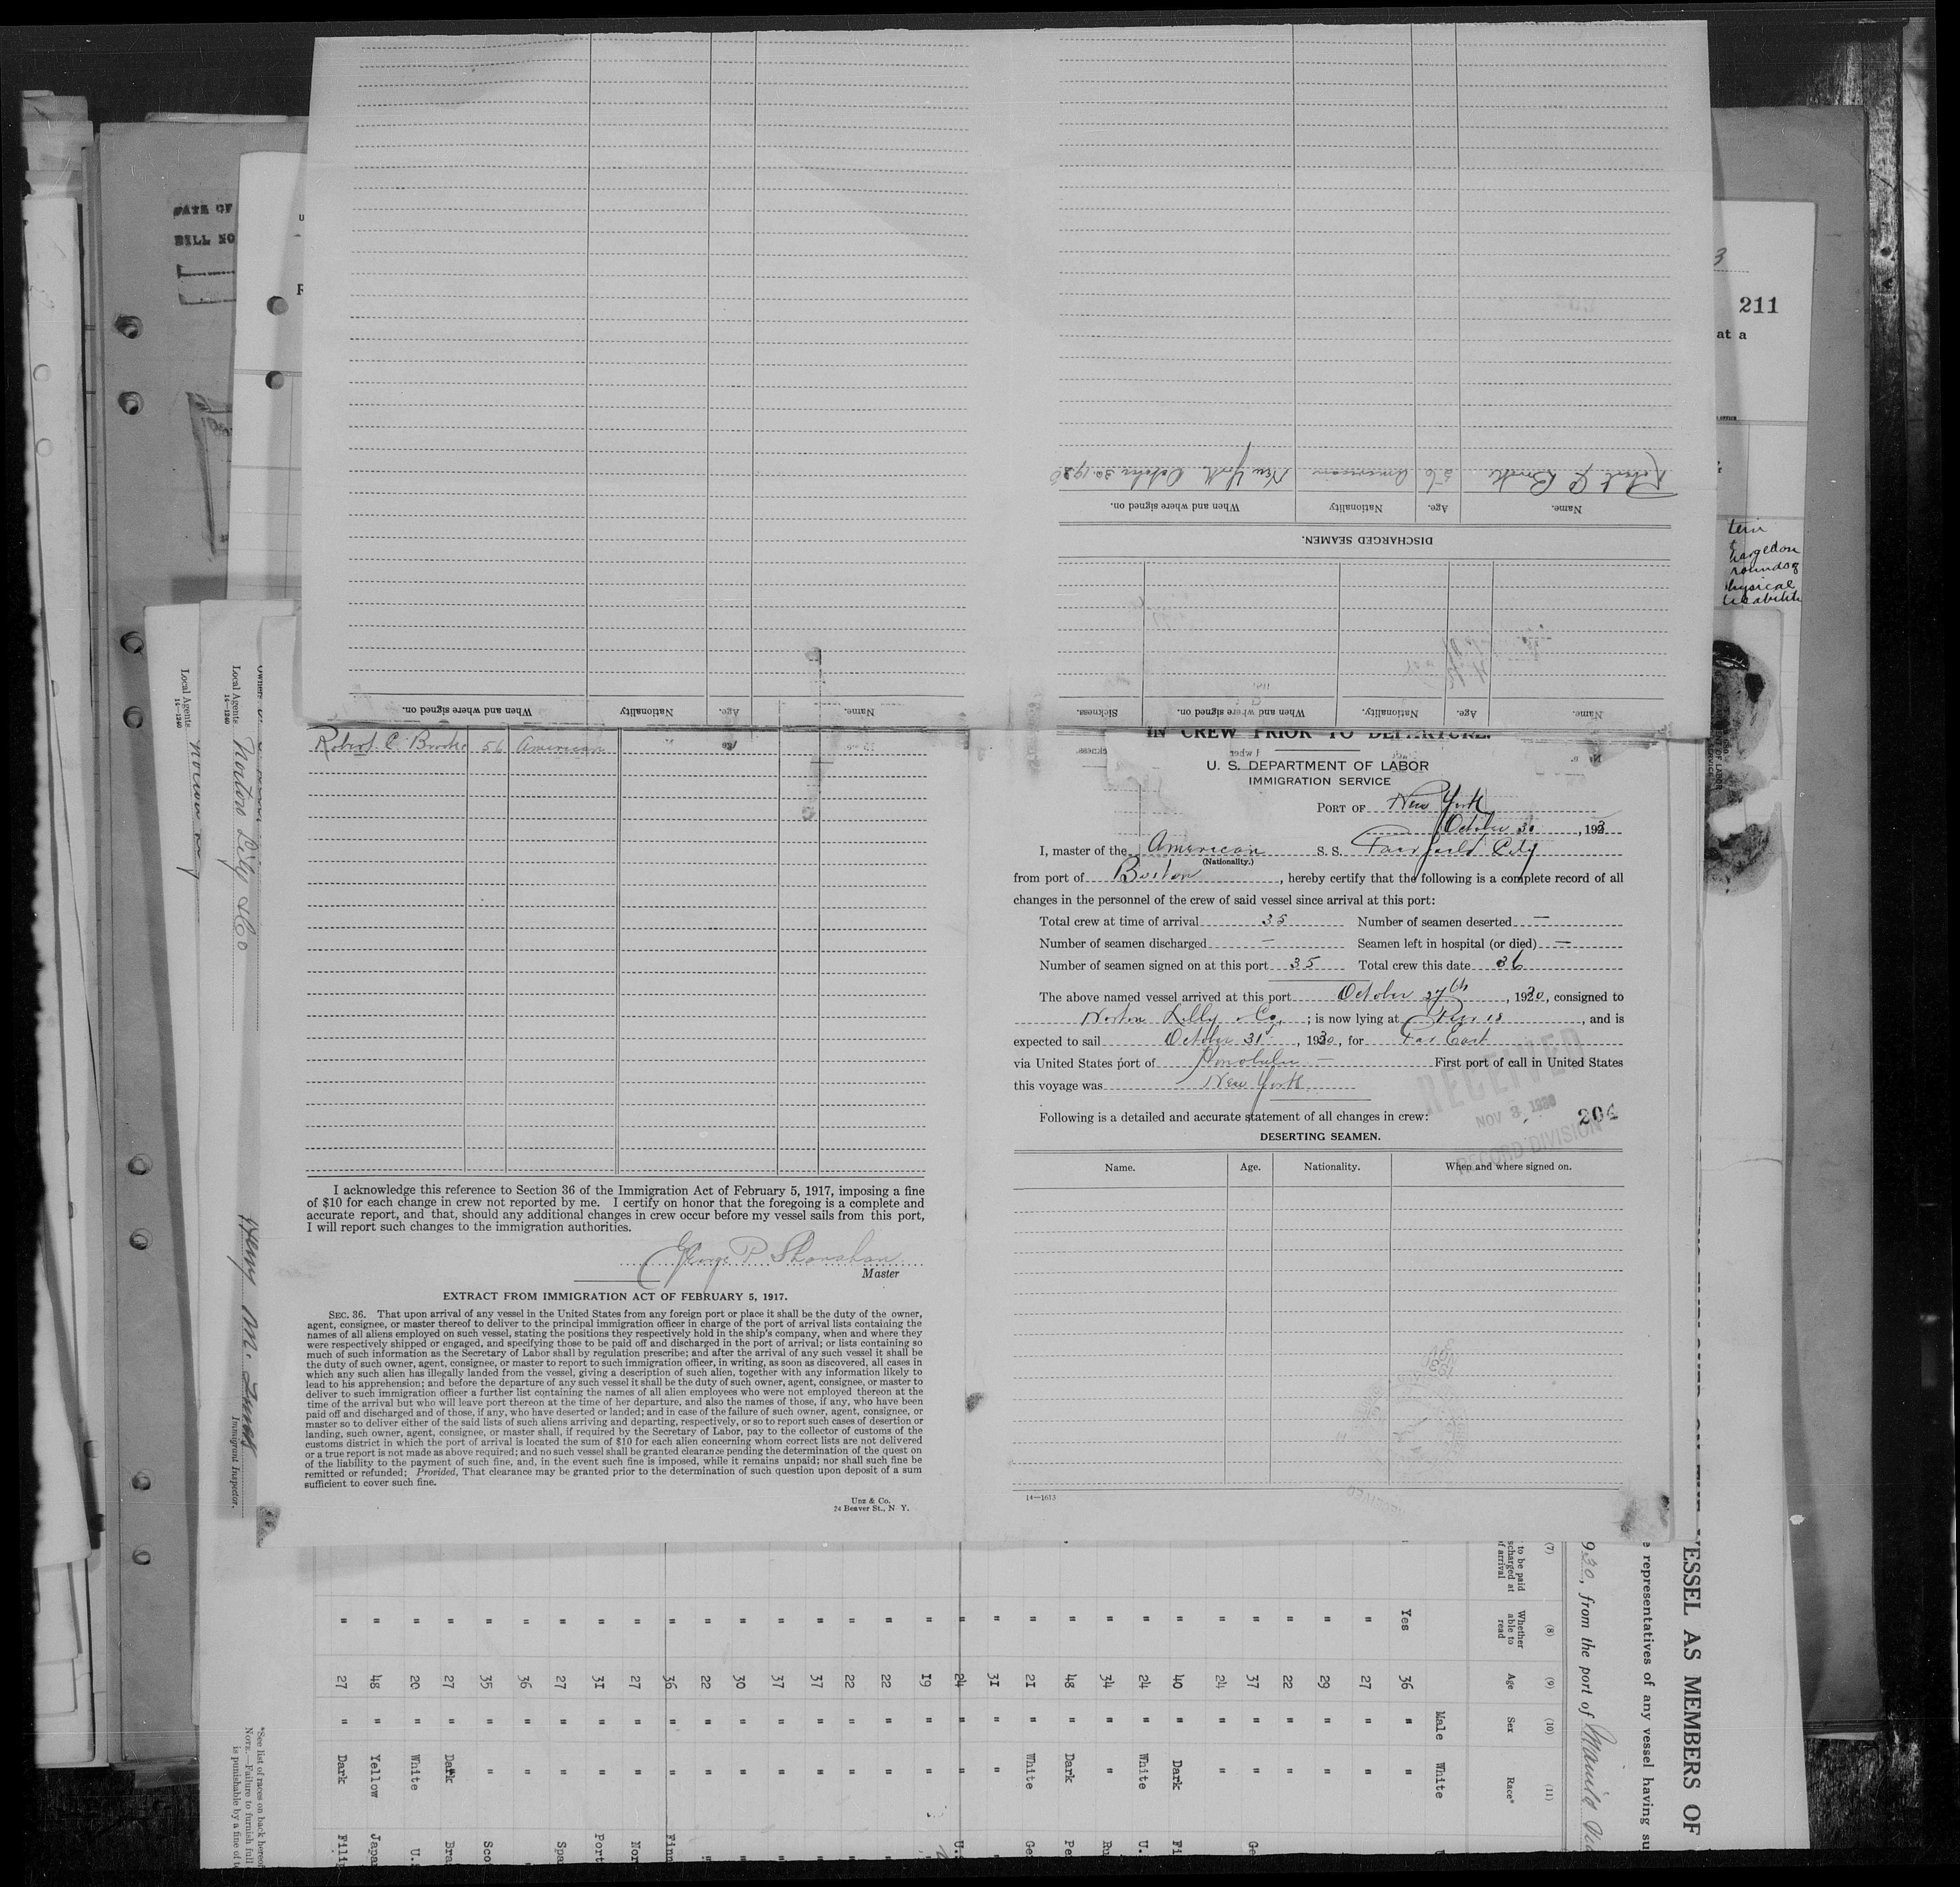 DATE OF
BILL NO
211
at a
hysical
Name.
Age.
Nationality
When and where signed on.
DISCHARGED SEAMEN.
Name.
Age.
Nationality
When and where signed on.
Robert C Brooks 56 American New York October 30 1930
Name.
Age.
Nationality.
When and where signed on.
Sickness.
Robert C. Brooks 56 American
I acknowledge this reference to Section 36 of the Immigration Act of February 5, 1917, imposing a fine
of $10 for each change in crew not reported by me. I certify on honor that the foregoing is a complete and
accurate report, and that, should any additional changes in crew occur before my vessel sails from this port,
I will report such changes to the immigration authorities.
George P Shanahan
Master
EXTRACT FROM IMMIGRATION ACT OF FEBRUARY 5, 1917.
SEC. 36. That upon arrival of any vessel in the United States from any foreign port or place it shall be the duty of the owner,
agent, consignee, or master thereof to deliver to the principal immigration officer in charge of the port of arrival lists containing the
names of all aliens employed on such vessel, stating the positions they respectively hold in the ship's company, when and where they
were respectively shipped or engaged, and specifying those to be paid off and discharged in the port of arrival; or lists containing so
much of such information as the Secretary of Labor shall by regulation prescribe; and after the arrival of any such vessel it shall be
the duty of such owner, agent, consignee, or master to report to such immigration officer, in writing, as soon as discovered, all cases in
which any such alien has illegally landed from the vessel, giving a description of such alien, together with any information likely to
lead to his apprehension; and before the departure of any such vessel it shall be the duty of such owner, agent, consignee, or master to
deliver to such immigration officer a further list containing the names of all alien employees who were not employed thereon at the
time of the arrival but who will leave port thereon at the time of her departure, and also the names of those, if any, who have been
paid off and discharged and of those, if any, who have deserted or landed; and in case of the failure of such owner, agent, consignee, or
master so to deliver either of the said lists of such aliens arriving and departing, respectively, or so to report such cases of desertion or
landing, such owner, agent, consignee, or master shall, if required by the Secretary of Labor, pay to the collector of customs of the
customs district in which the port of arrival is located the sum of $10 for each alien concerning whom correct lists are not delivered
or a true report is not made as above required; and no such vessel shall be granted clearance pending the determination of the quest on
of the liability to the payment of such fine, and, in the event such fine is imposed, while it remains unpaid; nor shall such fine be
remitted or refunded; Provided, That clearance may be granted prior to the determination of such question upon deposit of a sum
sufficient to cover such fine.
Unz & Co.
24 Beaver St., N Y.
IN CREW PRIOR TO DEPARTURE.
U. S. DEPARTMENT OF LABOR
IMMIGRATION SERVICE
PORT OF New York
October 30, 193
I, master of the American S. S. Fairfield City
(Nationality.)
from port of Boston, hereby certify that the following is a complete record of all
changes in the personnel of the crew of said vessel since arrival at this port:
Total crew at time of arrival 35 Number of seamen deserted —
Number of seamen discharged — Seamen left in hospital (or died) —
Number of seamen signed on at this port 35 Total crew this date 36
The above named vessel arrived at this port October 27th, 1930, consigned to
Norton Lilly Co, ; is now lying at Pier 18, and is
expected to sail October 31st, 1930, for Far East
via United States port of Honolulu — First port of call in United States
this voyage was New York
Following is a detailed and accurate statement of all changes in crew:
RECEIVED
NOV 3 1930
RECORD DIVISION
204
DESERTING SEAMEN.
Name. Age. Nationality. When and where signed on.
14—1615
Local Agents
14—1240
Local Agents Norton Lilly & Co
14—1240
Henry M.
Immigrant Inspector.
VESSEL AS MEMBERS OF
representatives of any vessel having su
930, from the port of Manila
(7) (8) (9) (10) (11)
to be paid
scharged at
of arrival
Whether
able to
read
Age
Sex
Race*
Male White
Yes 36 "
" 27 " "
" 29 " "
" 22 " "
" 37 " " Ge
" 24 " "
" 40 " Dark Fi
" 24 " White U.
" 34 " " Ru
" 48 " Dark Pe
" 21 " White Ge
" 31 " "
" 24 " " U.
" 19 " "
" 22 " "
" 22 " "
" 37 " "
" 37 " "
" 30 " "
" 22 " "
" 36 " " Finn
" 27 " " Nor
" 31 " " Port
" 27 " " Spa
" 36 " "
" 35 " " Sco
" 27 " Dark Bra
" 20 " White U.
" 48 " Yellow Japa
" 27 " Dark Fili
*See list of races on back hereof
NOTE.—Failure to furnish full
is punishable by a fine of